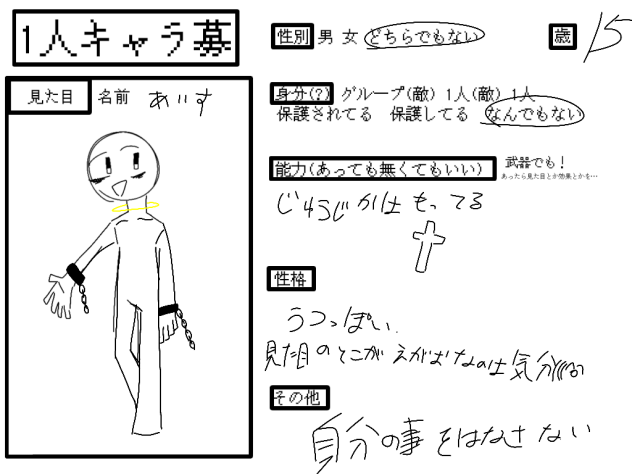 1人キャラ募
見た目 名前 あいす
性別 男 女 どちらでもない
歳 15
身分(?) グループ(敵) 1人(敵) 1人
保護されてる 保護してる なんでもない
能力(あっても無くてもいい) 武器でも!
あったら見た目とか効果とかを…
じゅうじかは もってる
性格
うつっぽい
見た目のとこが えがおなのは 気分
その他
自分の事をはなさない